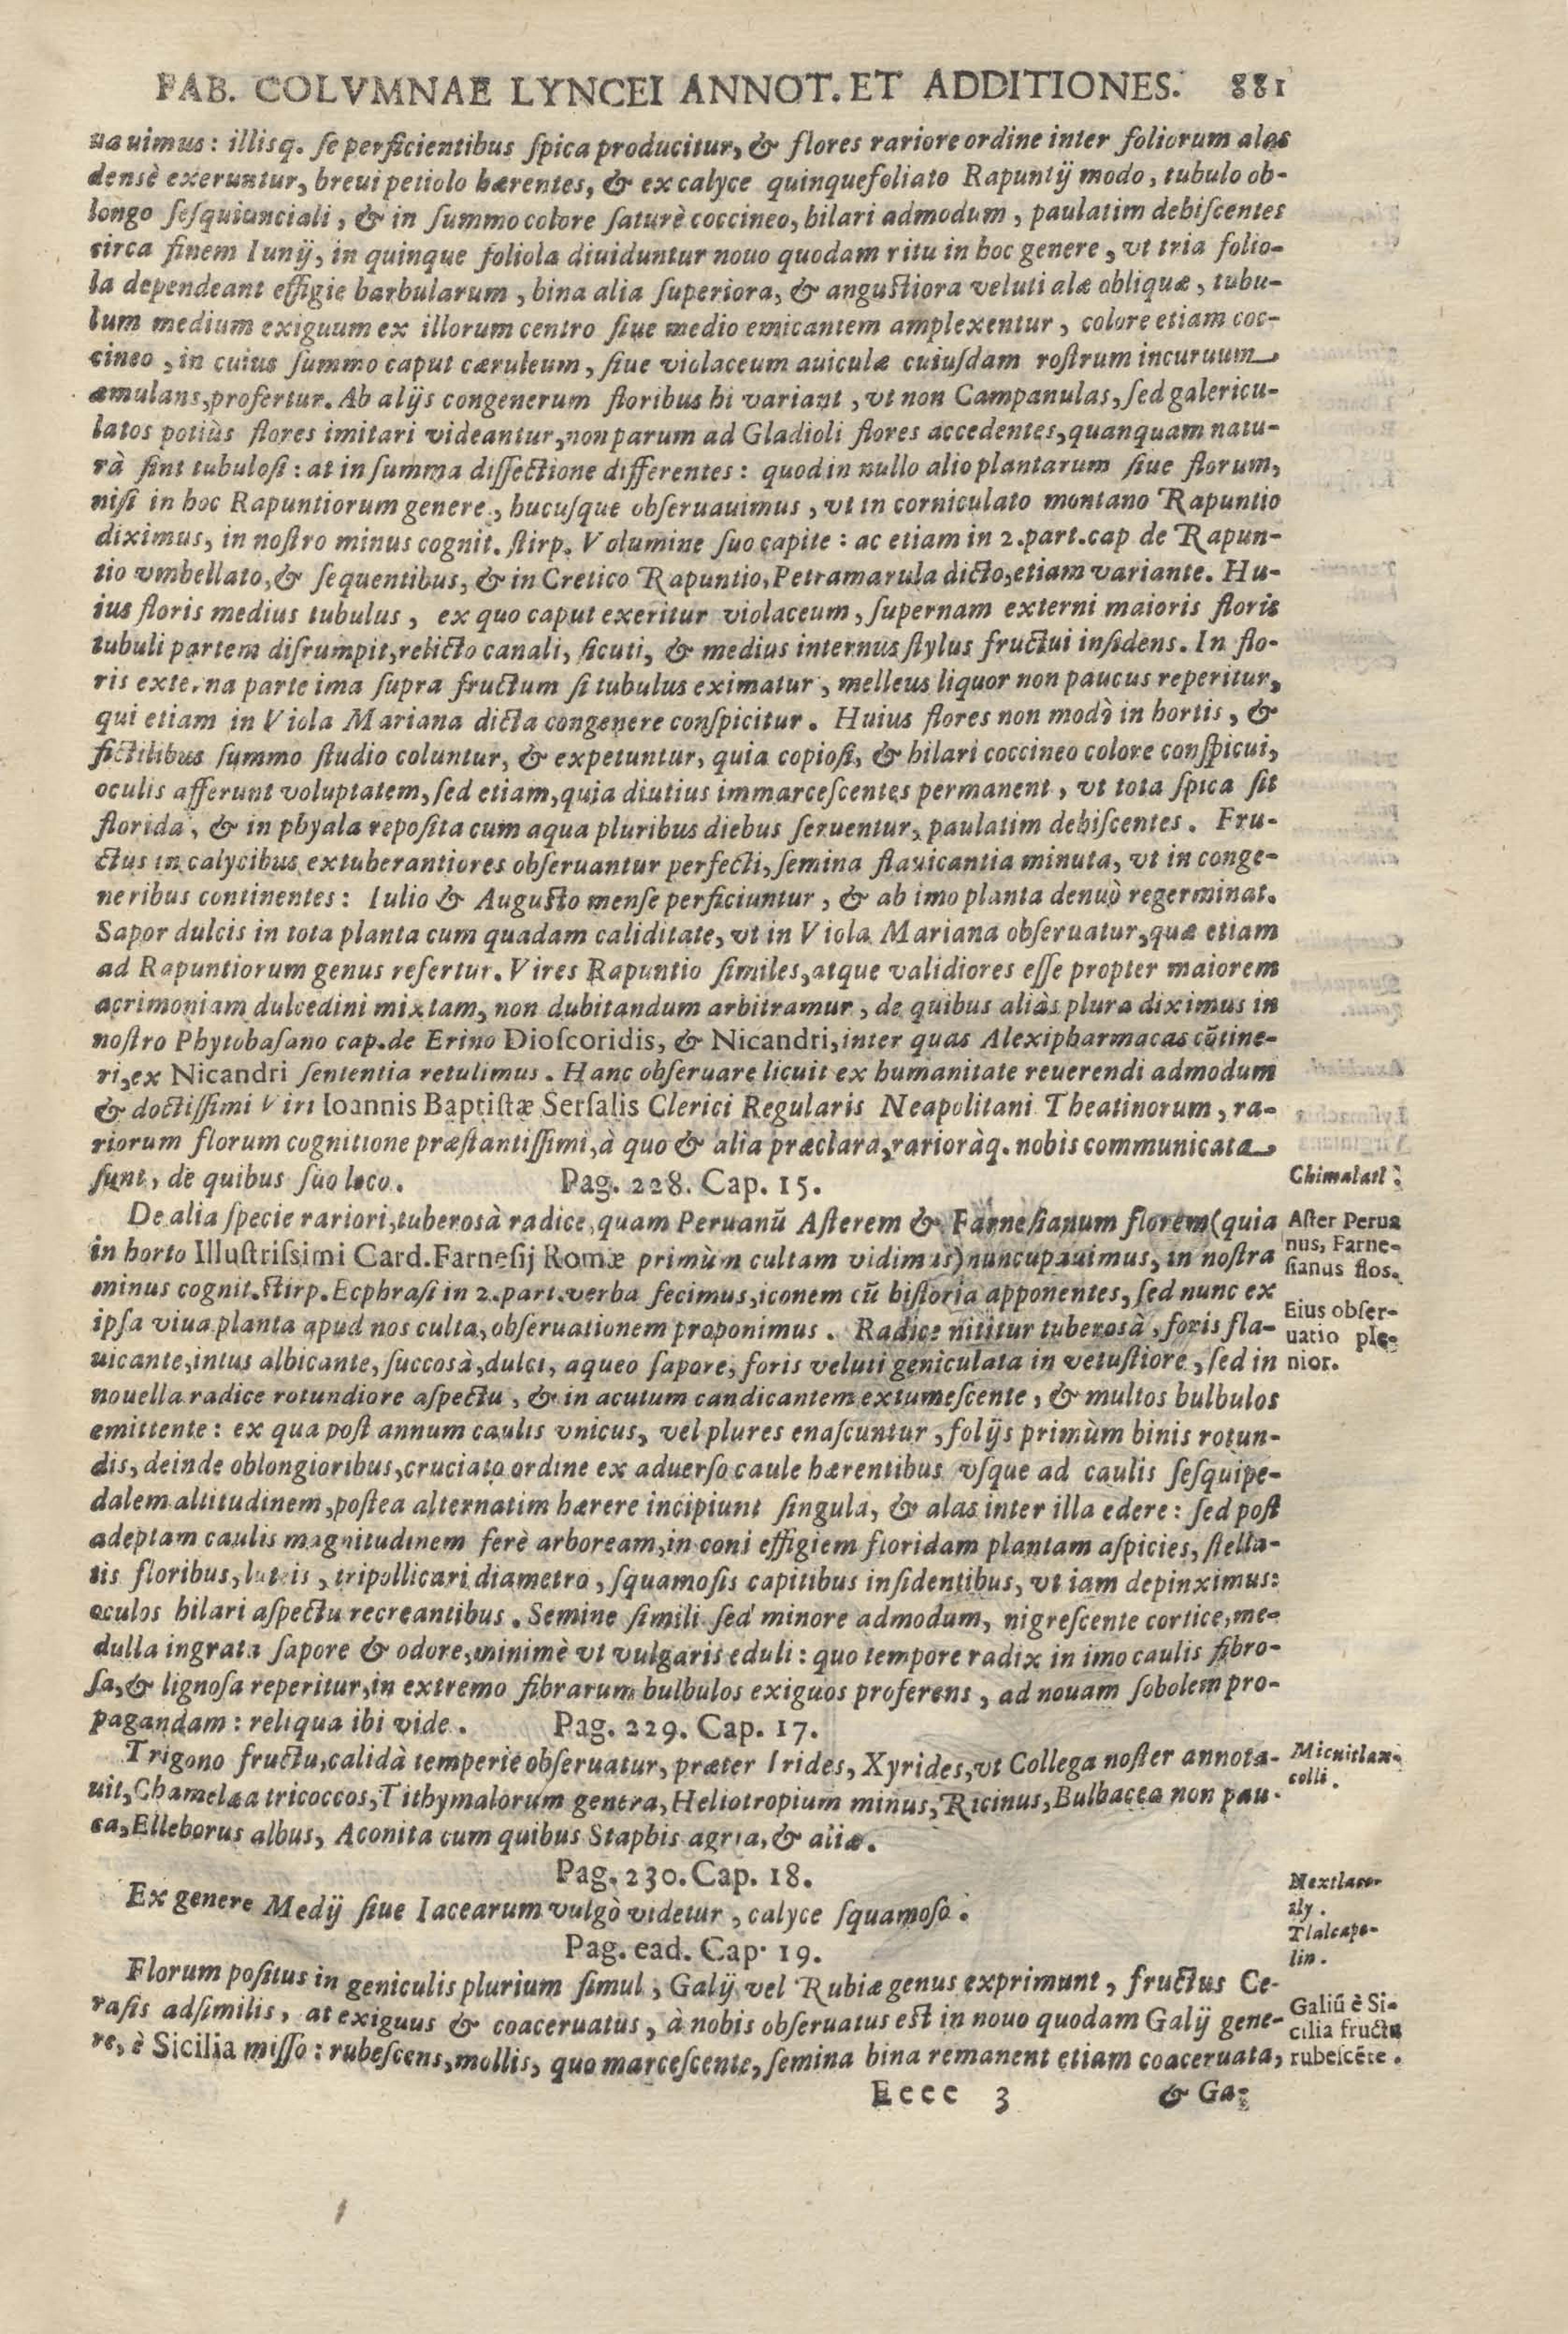 FAB. COLVMNAE LYNCEI ANNOT. ET ADDITIONES. 881
uauimus: illisq. se perficientibus ſpica producitur, & flores rariore ordine inter foliorum alas
densè exeruntur, breui petiolo hærentes, & ex calyce quinquefoliato Rapuntij modo, tubulo ob-
longo ſeſquiunciali, & in ſummo colore ſaturè coccineo, hilari admodum, paulatim dehiſcentes
circa finem Iunij, in quinque foliola diuiduntur nouo quodam ritu in hoc genere, vt tria folio-
la dependeant effigie barbularum, bina alia ſuperiora, & anguſtiora veluti alæ obliquæ, tubu-
lum medium exiguum ex illorum centro ſiue medio emicantem amplexentur, colore etiam coc-
cineo, in cuius ſummo caput cæruleum, ſiue violaceum auiculæ cuiuſdam roſtrum incuruum
æmulans, profertur. Ab alijs congenerum floribus hi variant, vt non Campanulas, ſed galericu-
latos potiùs flores imitari videantur, non parum ad Gladioli flores accedentes, quanquam natu-
rà ſint tubuloſi: at in ſumma diſſectione differentes: quod in nullo alio plantarum ſiue florum,
niſi in hoc Rapuntiorum genere, hucuſque obſeruauimus, vt in corniculato montano Rapuntio
diximus, in noſtro minus cognit. ſtirp. Volumine ſuo capite: ac etiam in 2. part. cap de Rapun-
tio vmbellato, & ſequentibus, & in Cretico Rapuntio, Petramarula dicto, etiam variante. Hu-
ius floris medius tubulus, ex quo caput exeritur violaceum, ſupernam externi maioris floris
tubuli partem diſrumpit, relicto canali, ſicuti, & medius internus ſtylus fructui inſidens. In flo-
ris externa parte ima ſupra fructum ſi tubulus eximatur, melleus liquor non paucus reperitur,
qui etiam in Viola Mariana dicta congenere conſpicitur. Huius flores non modò in hortis, &
fictilibus ſummo ſtudio coluntur, & expetuntur, quia copioſi, & hilari coccineo colore conſpicui,
oculis afferunt voluptatem, ſed etiam, quia diutius immarceſcentes permanent, vt tota ſpica ſit
florida, & in phyala repoſita cum aqua pluribus diebus ſeruentur, paulatim dehiſcentes. Fru-
ctus in calycibus extuberantiores obſeruantur perfecti, ſemina flauicantia minuta, vt in conge-
neribus continentes: Iulio & Auguſto menſe perficiuntur, & ab imo planta denuò regerminat.
Sapor dulcis in tota planta cum quadam caliditate, vt in Viola Mariana obſeruatur, quæ etiam
ad Rapuntiorum genus refertur. Vires Rapuntio ſimiles, atque validiores eſſe propter maiorem
acrimoniam dulcedini mixtam, non dubitandum arbitramur, de quibus aliàs plura diximus in
noſtro Phytobaſano cap. de Erino Dioſcoridis, & Nicandri, inter quas Alexipharmacas cõtine-
ri, ex Nicandri ſententia retulimus. Hanc obſeruare licuit ex humanitate reuerendi admodum
& doctiſſimi Viri Ioannis Baptiſtæ Serſalis Clerici Regularis Neapolitani Theatinorum, ra-
riorum florum cognitione præſtantiſſimi, à quo & alia præclara, rarioràq. nobis communicata
ſunt, de quibus ſuo loco. Pag. 228. Cap. 15.
Chimalatl.
De alia ſpecie rariori, tuberosà radice, quam Peruanũ Aſterem & Farneſianum florem (quia
in horto Illuſtriſsimi Card. Farneſij Romæ primùm cultam vidimus) nuncupauimus, in noſtra
minus cognit. ſtirp. Ecphraſi in 2. part. verba fecimus, iconem cũ hiſtoria apponentes, ſed nunc ex
ipſa viua planta apud nos culta, obſeruationem proponimus. Radice nititur tuberosà, foris fla-
uicante, intus albicante, ſuccosà, dulci, aqueo ſapore, foris veluti geniculata in vetuſtiore, ſed in
nouella radice rotundiore aſpectu, & in acutum candicantem extumeſcente, & multos bulbulos
emittente: ex qua poſt annum caulis vnicus, vel plures enaſcuntur, folijs primùm binis rotun-
dis, deinde oblongioribus, cruciato ordine ex aduerſo caule hærentibus vſque ad caulis ſeſquipe-
dalem altitudinem, poſtea alternatim hærere incipiunt ſingula, & alas inter illa edere: ſed poſt
adeptam caulis magnitudinem ferè arboream, in coni effigiem floridam plantam aſpicies, ſtella-
tis floribus, luteis, tripollicari diametro, ſquamoſis capitibus inſidentibus, vt iam depinximus:
oculos hilari aſpectu recreantibus. Semine ſimili ſed minore admodum, nigreſcente cortice, me-
dulla ingrata ſapore & odore, minimè vt vulgaris eduli: quo tempore radix in imo caulis fibro-
ſa, & lignoſa reperitur, in extremo fibrarum bulbulos exiguos proferens, ad nouam ſobolem pro-
pagandam: reliqua ibi vide. Pag. 229. Cap. 17.
Aſter Perua
nus, Farne-
ſianus flos.
Eius obſer-
uatio ple-
nior.
Trigono fructu, calidà temperie obſeruatur, præter Irides, Xyrides, vt Collega noſter annota-
uit, Chamelæa tricoccos, Tithymalorum genera, Heliotropium minus, Ricinus, Bulbacea non pau-
ca, Elleborus albus, Aconita cum quibus Staphis agria, & aliæ.
Micuitlax-
colli.
Pag. 230. Cap. 18.
Ex genere Medij ſiue Iacearum vulgò videtur, calyce ſquamoſo.
Tlalcapo-
lin.
Pag. ead. Cap. 19.
Florum poſitus in geniculis plurium ſimul, Galij vel Rubiæ genus exprimunt, fructus Ce-
raſis adſimilis, at exiguus & coaceruatus, à nobis obſeruatus eſt in nouo quodam Galij gene-
re, è Sicilia miſſo: rubeſcens, mollis, quo marceſcente, ſemina bina remanent etiam coaceruata,
Galiũ è Si-
cilia fructu
rubeſcẽte.
Eeee 3 & Ga-